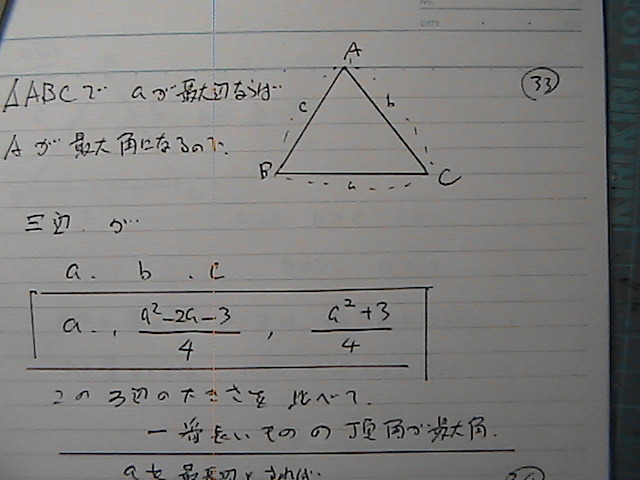 DATE
KIRIKIMILLION
33
△ABCで aが最大辺ならば
Aが最大角になるので、
A
c b
B a C
三辺が
a. b. c
a , a²-2a-3/4 , a²+3/4
この3辺の大きさを比べて、
一番長いものの頂角が最大角.
aを最大辺とすれば